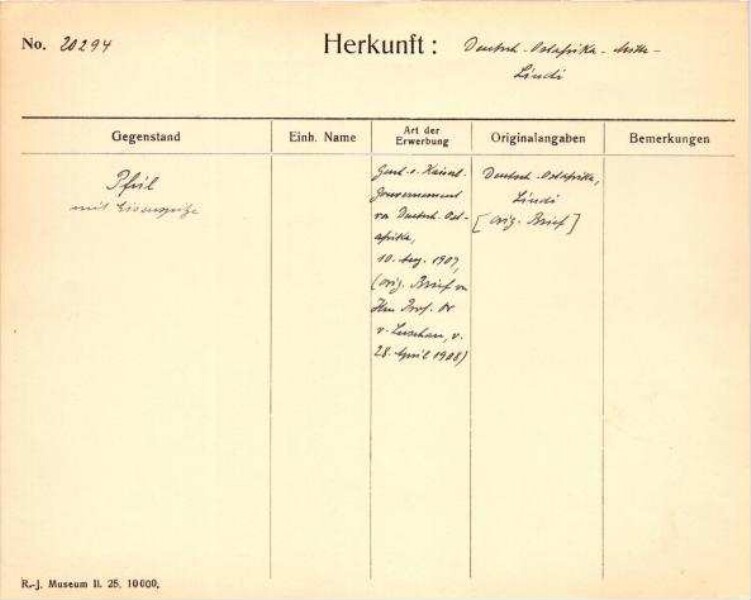 No. 20294
Herkunft: Deutsch-Ostafrika -
Lindi
Gegenstand
Einh. Name
Art der
Erwerbung
Originalangaben
Bemerkungen
Pfeil
mit Eisenspitze
v. Kaiserl.
Gouvernement
von Deutsch-Ost-
afrika,
10. 1907,
(orig. Brief von
Hrn Prof. Dr
v. Luschan, v.
28. April 1908)
Deutsch-Ostafrika,
Lindi
[orig. Brief]
R.-J. Museum II. 25. 10000.